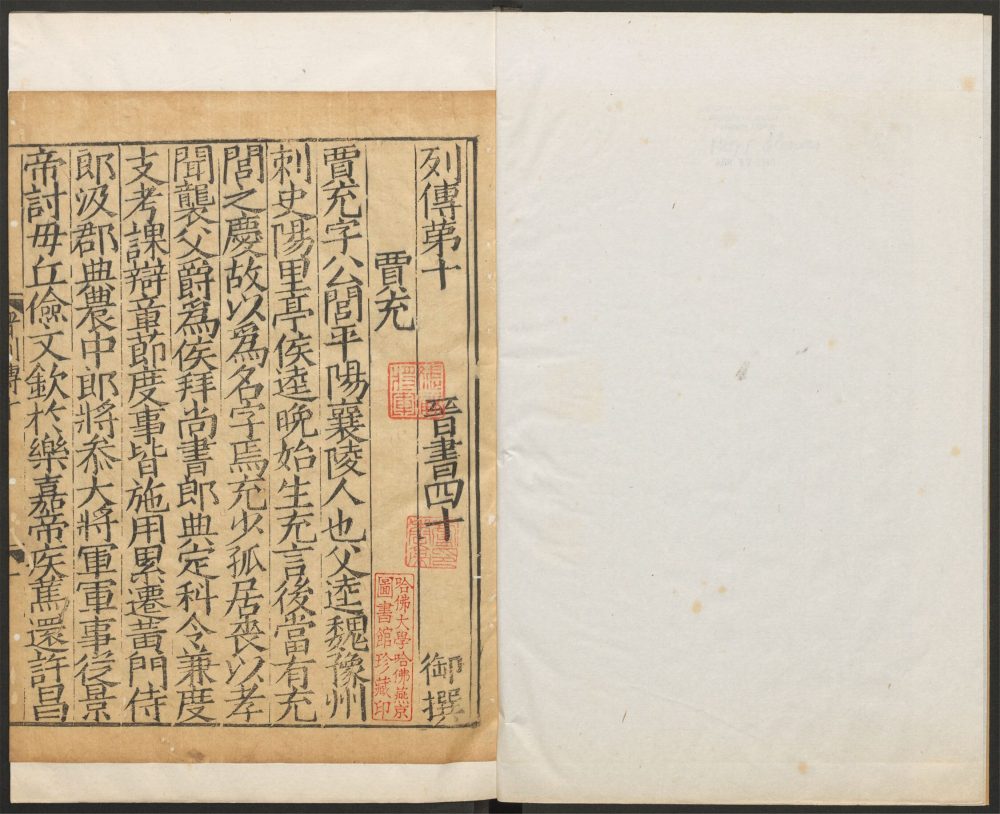 列傳第十 晉書四十 御撰
賈充
賈充字公閭平陽襄陵人也父逵魏豫州
刺史陽里亭侯逵晚始生充言後當有充
閭之慶故以爲名字焉充少孤居喪以孝
聞襲父爵爲侯拜尚書郎典定科令兼度
支考課辯章節度事皆施用累遷黃門侍
郎汲郡典農中郎將叅大將軍軍事從景
帝討毋丘儉文欽於樂嘉帝疾篤還許昌
哈佛大學哈佛燕京
圖書館珍藏印